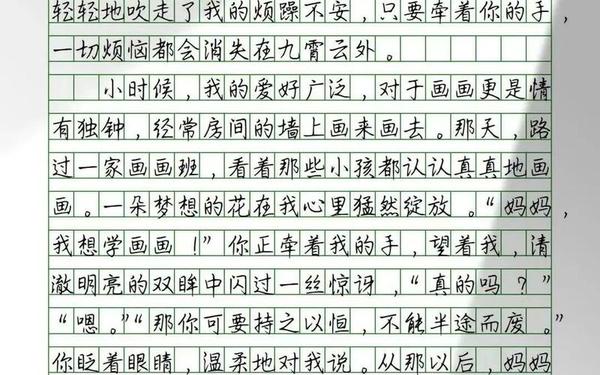 轻轻地吹走了我的烦躁不安，只要牵着你的手，
一切烦恼都会消失在九霄云外。
小时候，我的爱好广泛，对于画画更是情
有独钟，经常房间的墙上画来画去。那天，路
过一家画画班，看着那些小孩都认认真真地画
画。一朵梦想的花在我心里猛然绽放。“妈妈，
我想学画画！”你正牵着我的手，望着我，清
澈明亮的双眸中闪过一丝惊讶，“真的吗？”
“嗯。”“那你可要持之以恒，不能半途而废。”
你眨着眼睛，温柔地对我说。从那以后，妈妈